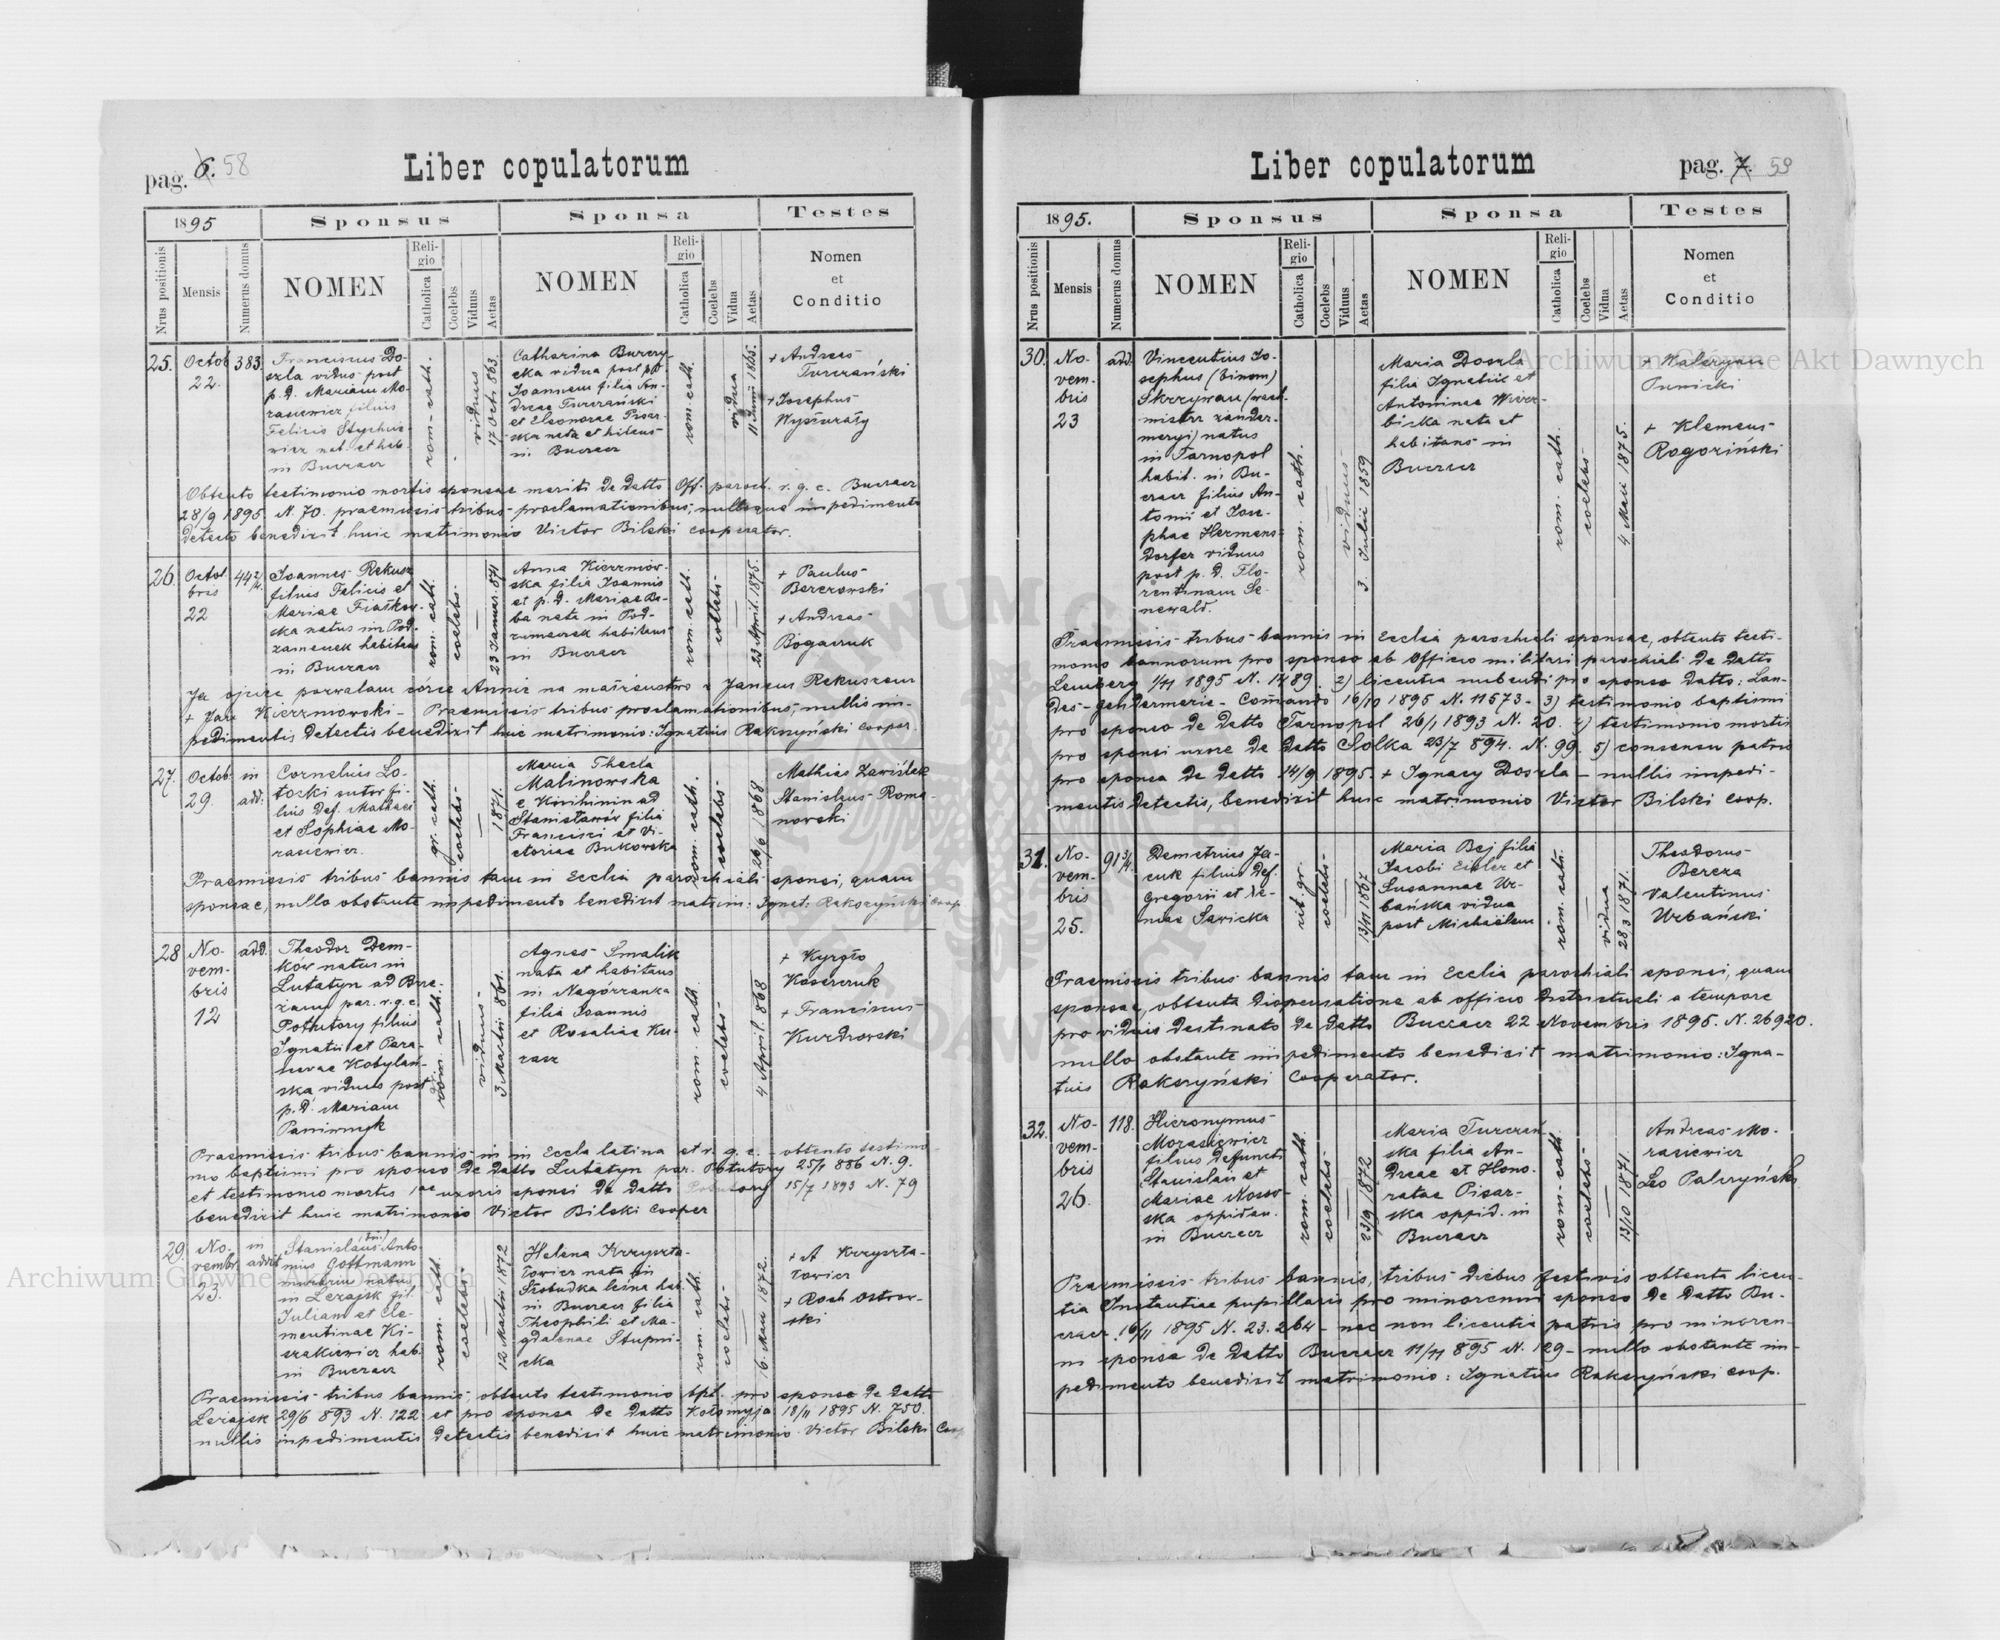 pag. 6. 58
Liber copulatorum
1895
Sponsus
Sponsa
Testes
Nrus positionis
Mensis
Numerus domus
NOMEN
Religio
Catholica
Coelebs
Viduus
Aetas
NOMEN
Religio
Catholica
Coelebs
Vidua
Aetas
Nomen
et
Conditio
25. Octob 22. 383.
Franciscus Do-
szla vidus post
p. d. Mariam Mo-
rasiewicz filius
Felicis
nat. et hab.
in Buczacz
rom. cath.
viduus
17 Oct. 863.
Catharina Burczy-
cka vidua post
Joannem filia An-
dreae Turczański
et Eleonorae Pisar-
ska nata et
in Buczacz
rom. cath.
vidua
11 Junii 1865.
+ Andreas
Turczański
+ Josephus
Obtento testimonio mortis sponsae mariti de datto Off. paroch. r. g. c. Buczacz
28/9 1895 N. 70. praemissis tribus proclamationibus, nulloque impedimento
detecto benedixit huic matrimonio Victor Bilski cooperator.
26. Octobris 22 44 2/4.
Joannes Rekusz
filius Felicis et
Mariae
natus in Pod-
zameczek habitans
in Buczacz
rom. cath.
coelebs
23 Januar. 871
Anna Kierzmow-
ska filia Joannis
et p. d. Mariae Ba-
ba nata in Pod-
zameczek habitans
in Buczacz
rom. cath.
coelebs
23 April. 1875.
+ Paulus
Berezowski
+ Andreas
Bogaczuk
Ja ojciec pozwalam córce Annie na małżeństwo z Janem Rekuszem
+ Jan Kierzmowski - Praemissis tribus proclamationibus, nullis im-
pedimentis detectis benedixit huic matrimonio: Ignatius Rakszyński cooper.
27. Octob. 29. in add.
Cornelius Lo-
toski sutor fi-
lius def. Matthaei
et Sophiae Mo-
rasiewicz.
gr. cath.
coelebs
1871.
Maria Thecla
Malinowska
e Knihinin ad
Stanisławów filia
Francisci et Vi-
ctoriae Bukowska
rom. cath.
coelebs
26/6 1868
Mathias Zawiślak
Stanislaus Roma-
nowski
Praemissis tribus bannis tam in Ecclia parochiali sponsi, quam
sponsae, nullo obstante impedimento benedixit matrim: Ignat: Rakszyński coop.
28 Novembris 12 add.
Theodor Dem-
ków natus in
Lutatyn ad Brze-
żany par. r.g.c.
Potutory filius
Ignatii et Para-
scevae Kobylań-
ska viduus post
p. d. Mariam
rom. cath.
viduus
3 Martii 861.
Agnes Smalik
nata et habitans
in Nagórzanka
filia Joannis
et Rosaliae Ku-
rasz
rom. cath.
coelebs
4 April. 868
+ Kyryło
Kaserczuk
+ Franciscus
Kurdrowski
Praemissis tribus bannis in Eccla latina et r. g. c. - obtento testimo-
nio baptismi pro sponso de datto Lutatyn par. Potutory 25/1 886 N. 9.
et testimonio mortis 1ae uxoris sponsi de datto Potutory 15/7 1893 N. 79
benedixit huic matrimonio Victor Bilski Cooper
29. Novembr. 23. in addit
Stanislaus (bin.) Anto-
nius Gottmann
natus
in Leżajsk fil.
Juliani et Cle-
mentinae Ki-
szakiewicz hab.
in Buczacz
rom. cath.
coelebs
12 Martii 1872
Helena Krzyszta-
łowicz nata in
Słobudka leśna hab.
in Buczacz filia
Theophili et Ma-
gdalenae Stupni-
cka
rom. cath.
coelebs
16 Maii 1872.
+ A Krzyszta-
łowicz
+ Roch Ostrow-
ski
Praemissis tribus bannis, obtento testimonio bpt. pro sponso de datto
Leżajsk 29/6 893 N. 122 et pro sponsa de datto Kołomyja 18/11 1895 N. 750.
nullis impedimentis detectis benedixit huic matrimonio Victor Bilski Coop
Liber copulatorum
pag. 7. 59
1895.
Sponsus
Sponsa
Testes
Nrus positionis
Mensis
Numerus domus
NOMEN
Religio
Catholica
Coelebs
Viduus
Aetas
NOMEN
Religio
Catholica
Coelebs
Vidua
Aetas
Nomen
et
Conditio
30. Novembris 23 add.
Vincentius Jo-
sephus (binom)
Skrzywan (wach-
mistrz żandar-
meryi) natus
in Tarnopol
habit. in Bu-
czacz filius An-
tonii et Jose-
phae Hermens-
dorfer viduus
post p. d. Flo-
rentinam Se-
newald.
rom. cath.
viduus
3. Julii 1859
Maria Doszla
filia Ignatii et
Antoninae Wierz-
bicka nata et
habitans in
Buczacz
rom. cath.
coelebs
4 Maii 1875.
+ Waleryan
+ Klemens
Rogoziński
Praemissis tribus bannis in Ecclia parochiali sponsae, obtento testi-
monio bannorum pro sponso ab Officio militari parochiali de datto
Lemberg 1/11 1895 N. 1489. 2) licentia nubendi pro sponso datto: Lan-
des-gendarmerie-Comando 16/10 1895 N. 11573 - 3) testimonio baptismi
pro sponso de datto Tarnopol 26/1 1893 N. 20. 4) testimonio mortis
pro sponsi uxore de datto Solka 23/7 894. N. 99. 5) consensu patris
pro sponsa de datto 14/9 1895. + Ignacy Doszla - nullis impedi-
mentis detectis, benedixit huic matrimonio Victor Bilski coop.
31. Novembris 25. 91 3/4
Demetrius Ja-
cuk filius def.
Gregorii et Xe-
niae Sawicka
rit. gr.
coelebs
13/11 1867
Maria Bej filia
Jacobi Eisler et
Susannae Ur-
bańska vidua
post Michaëlem
rom. cath.
vidua
28/3 1871.
Theodorus
Bereza
Valentinus
Urbański
Praemissis tribus bannis tam in Ecclia parochiali sponsi, quam
sponsae, obtenta dispensatione ab officio districtuali a tempore
pro viduis destinato de datto Buczacz 22 Novembris 1895. N. 26920.
nullo obstante impedimento benedixit matrimonio: Igna-
tius Rakszyński Cooperator.
32. Novembris 26. 118.
Hieronymus
Morasiewicz
filius defuncti
Stanislai et
Mariae Nosso-
ska oppidan.
in Buczacz
rom. cath.
coelebs
23/9 1872
Maria Turczań-
ska filia An-
dreae et Hono-
ratae Pisar-
ska oppid. in
Buczacz
rom. cath.
coelebs
13/10 1871
Andreas Mo-
rasiewicz
Leo Palczyński
Praemissis tribus bannis, tribus diebus festivis obtenta licen-
tia Instantiae pupillaris pro minorenni sponso de datto Bu-
czacz 16/11 1895 N. 23.264 - nec non licentia patris pro minoren-
ni sponsa de datto Buczacz 11/11 895 N. 129 - nullo obstante im-
pedimento benedixit matrimonio: Ignatius Rakszyński coop.
Archiwum Główne Akt Dawnych
Archiwum Główne Akt Dawnych